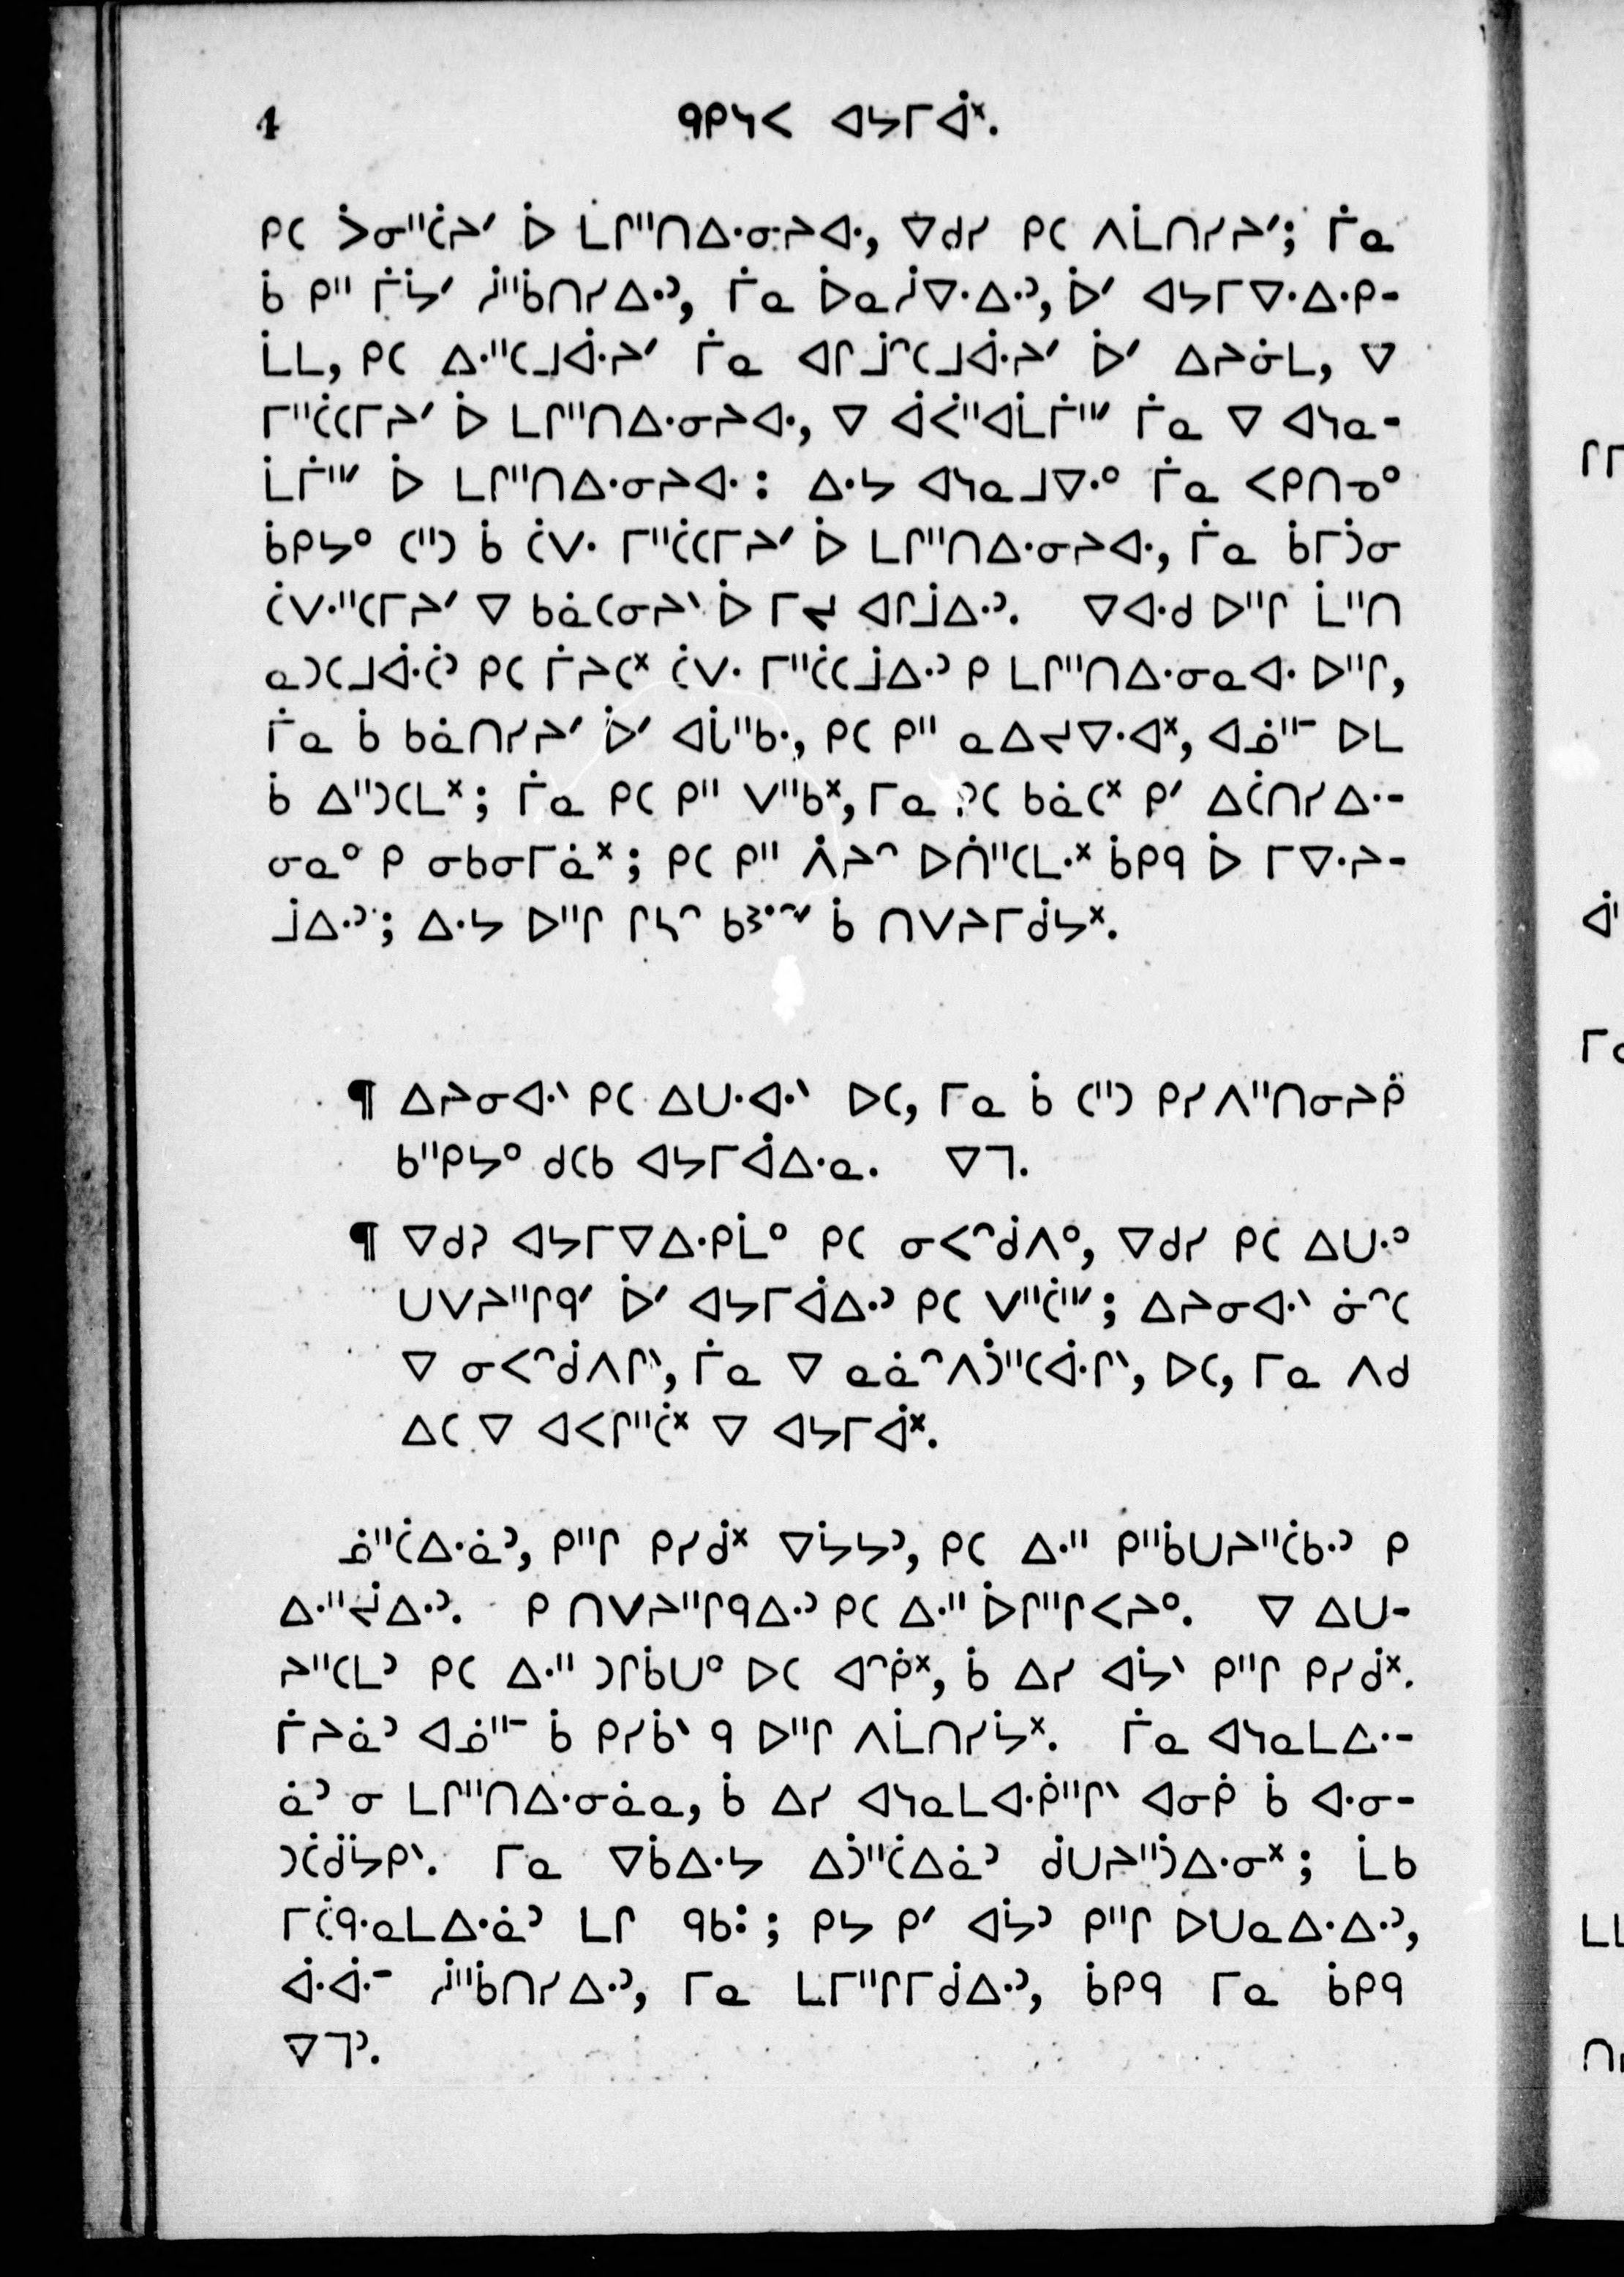 4 ᑫᑭᓭᐸ ᐊᔭᒥᐋᕽ.
ᑭᑕ ᐴᓂᐦᑖᔨᐟ ᐆ ᒫᒋᐦᑎᐃᐧᓂᔨᐊᐧ, ᐁᑯᓯ ᑭᑕ ᐱᒫᑎᓯᔨᐟ; ᒦᓇ
ᑳ ᑭᐦ ᒦᔮᐟ ᓰᐦᑳᑎᓯᐃᐧᐣ, ᒦᓇ ᐆᓇᓰᐁᐧᐃᐧᐣ, ᐆᐟ ᐊᔭᒥᐁᐧᐃᐧᑭ-
ᒫᒪ, ᑭᑕ ᐃᐧᐦᑕᒧᐋᐧᔨᐟ ᒦᓇ ᐊᒋᒧᐢᑕᒧᐋᐧᔨᐟ ᐆᐟ ᐃᔨᓃᒪ, ᐁ
ᒥᐦᑖᑕᒥᔨᐟ ᐆ ᒪᒋᐦᑎᐃᐧᓂᔨᐊᐧ, ᐁ ᐋᐹᐦᐊᒫᒦᐦᐟ ᒦᓇ ᐁ ᐊᓭᓇ-
ᒫᒦᐦᐟ ᐆ ᒪᒋᐦᑎᐃᐧᓂᔨᐊᐧ: ᐃᐧᔭ ᐊᓭᓇᒧᐁᐧᐤ ᒦᓇ ᐸᑭᑎᓄᐤ
ᑳᑭᔭᐤ ᑕᐦᑐ ᑳ ᑖᐯᐧ ᒥᐦᑖᑕᒥᔨᐟ ᐆ ᒪᒋᐦᑎᐃᐧᓂᔨᐊᐧ, ᒦᓇ ᑳᒥᑑᓂ
ᑖᐯᐧᐦᑕᒥᔨᐟ ᐁ ᑲᓈᑕᓂᔨᐠ ᐆ ᒥᔪ ᐊᒋᒨᐃᐧᐣ. ᐁᐊᐧᑯ ᐅᐦᒋ ᒫᐦᑎ
ᓇᑐᑕᒧᐋᐧᑖᐣ ᑭᑕ ᒦᔨᑕᕽ ᑖᐯᐧ ᒥᐦᑖᑕᒨᐃᐧᐣ ᑭ ᒪᒋᐦᑎᐃᐧᓂᓇᐊᐧ ᐅᐦᒋ,
ᒦᓇ ᑳ ᑲᓈᑎᓯᔨᐟ ᐆᐟ ᐊᒑᐦᑲᐧ, ᑭᑕ ᑭᐦ ᓇᐃᔪᐁᐧᐊᕽ, ᐊᓅᐦᐨ ᐅᒪ
ᑳ ᐃᐦᑐᑕᒪᕽ; ᒦᓇ ᑭᑕ ᑭᐦ ᐯᐦᑲᕽ, ᒥᓇ ᑭᑕ ᑲᓈᑕᕽ ᑭᐟ ᐃᑖᑎᓯᐃᐧ-
ᓂᓇᐤ ᑭ ᓂᑲᓂᒥᓈᕽ; ᑭᑕ ᑭᐦ ᐲᔨᐢ ᐅᑏᐦᑕᒪᐧᕽ ᑳᑭᑫ ᐆ ᒥᐁᐧᔨ-
ᒧᐃᐧᐣ; ᐃᐧᔭ ᐅᐦᒋ ᒋᓴᐢ ᑳ ᑎᐯᔨᒥᑰᔭᕽ.
¶ ᐃᔨᓂᐊᐧᐠ ᑭᑕ ᐃᑌᐧᐊᐧᐠ ᐅᑕ, ᒥᓇ ᑳ ᑕᐦᑐ ᑭᓯᐱᐦᑎᓂᔨᑮ
ᑲᐦᑭᔭᐤ ᑯᑕᑲ ᐊᔭᒥᐋᐃᐧᓇ. ᐁᒣᐣ.
¶ ᐁᑯᓯ ᐊᔭᒥᐁᐃᐧᑭᒫᐤ ᑭᑕ ᓂᐸᐢᑰᐱᐤ, ᐁᑯᓯ ᑭᑖ ᐃᑌᐧᐣ
ᑌᐯᔨᐦᒋᑫᐟ ᐆᐟ ᐊᔭᒥᐋᐃᐧᐣ ᑭᑕ ᐯᐦᑖᐦᐟ; ᐃᔨᓂᐊᐧᐠ ᓃᐢᑕ
ᐁ ᓂᐸᐢᑰᐱᒋᐠ, ᒦᓇ ᐁ ᓇᓈᐢᐱᑑᐦᑕᐋᐧᒋᐠ, ᐅᑕ, ᒥᓇ ᐱᑯ
ᐃᑕ ᐁ ᐊᐸᒋᐦᑖᕽ ᐁ ᐊᔭᒥᐋᕽ.
ᓅᐦᑖᐃᐧᓈᐣ, ᑭᐦᒋ ᑭᓯᑰᕽ ᐁᔮᔭᐣ, ᑭᑕ ᐃᐧᐦ ᑭᐦᑳᑌᔨᐦᑖᑲᐧᐣ ᑭ
ᐃᐧᐦᔫᐃᐧᐣ. ᑭ ᑎᐯᔨᐦᒋᑫᐃᐧᐣ ᑭᑕ ᐃᐧᐦ ᐆᒋᐦᒋᐸᔨᐤ. ᐁ ᐃᑌ-
ᔨᐦᑕᒪᐣ ᑭᑕ ᐃᐧᐦ ᑐᒋᑳᑌᐤ ᐅᑕ ᐊᐢᑮᕽ, ᑳ ᐃᓯ ᐊᔮᐠ ᑭᐦᒋ ᑭᓯᑰᕽ.
ᒦᔨᓈᐣ ᐊᓅᐦᐨ ᑳ ᑭᓯᑳᐠ ᑫ ᐅᐦᒋ ᐱᒫᑎᓯᔮᕽ. ᒦᓇ ᐊᓭᓇᒪᐃᐧ-
ᓈᐣ ᓂ ᒪᒋᐦᑎᐃᐧᓂᓈᓇ, ᑳ ᐃᓯ ᐊᓭᓇᒪᐊᐧᑮᐦᒋᐠ ᐊᓂᑮ ᑳ ᐊᐧᓂ-
ᑐᑖᑰᔭᑭᐠ. ᒥᓇ ᐁᑳᐃᐧᔭ ᐃᑑᐦᑖᐃᓈᐣ ᑰᑌᔨᐦᑑᐃᐧᓂᕽ; ᒫᑲ
ᒥᑖᑫᐧᓇᒪᐃᐧᓈᐣ ᒪᒋ ᑫᑲᐧᕀ; ᑭᔭ ᑭᐟ ᐊᔮᐣ ᑭᐦᒋ ᐅᑌᓇᐃᐧᐃᐧᐣ,
ᐋᐧᐋᐧᐨ ᓰᐦᑳᑎᓯᐃᐧᐣ, ᒥᓇ ᒪᒥᐦᒋᒥᑰᐃᐧᐣ, ᑳᑭᑫ ᒥᓇ ᑳᑭᑫ
ᐁᒣᐣ.